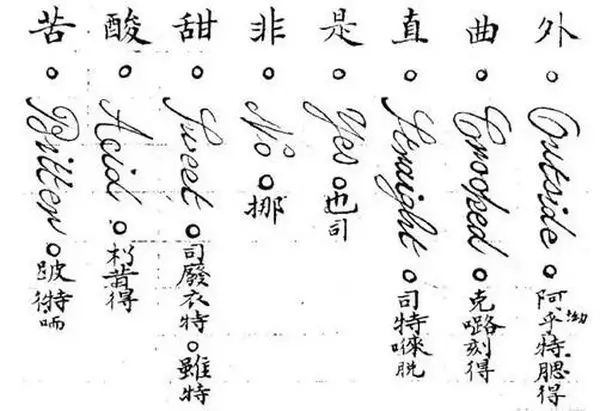 外 ○ Outside ○ 阿乎特腮得 拗
曲 ○ Crooked ○ 克 刻得
直 ○ Straight ○ 司特唻脫
是 ○ Yes ○ 也司
非 ○ No ○ 挪
甜 ○ Sweet ○ 司廢衣特 ○ 雖特
酸 ○ Acid ○ 得
苦 ○ Bitter ○ 特